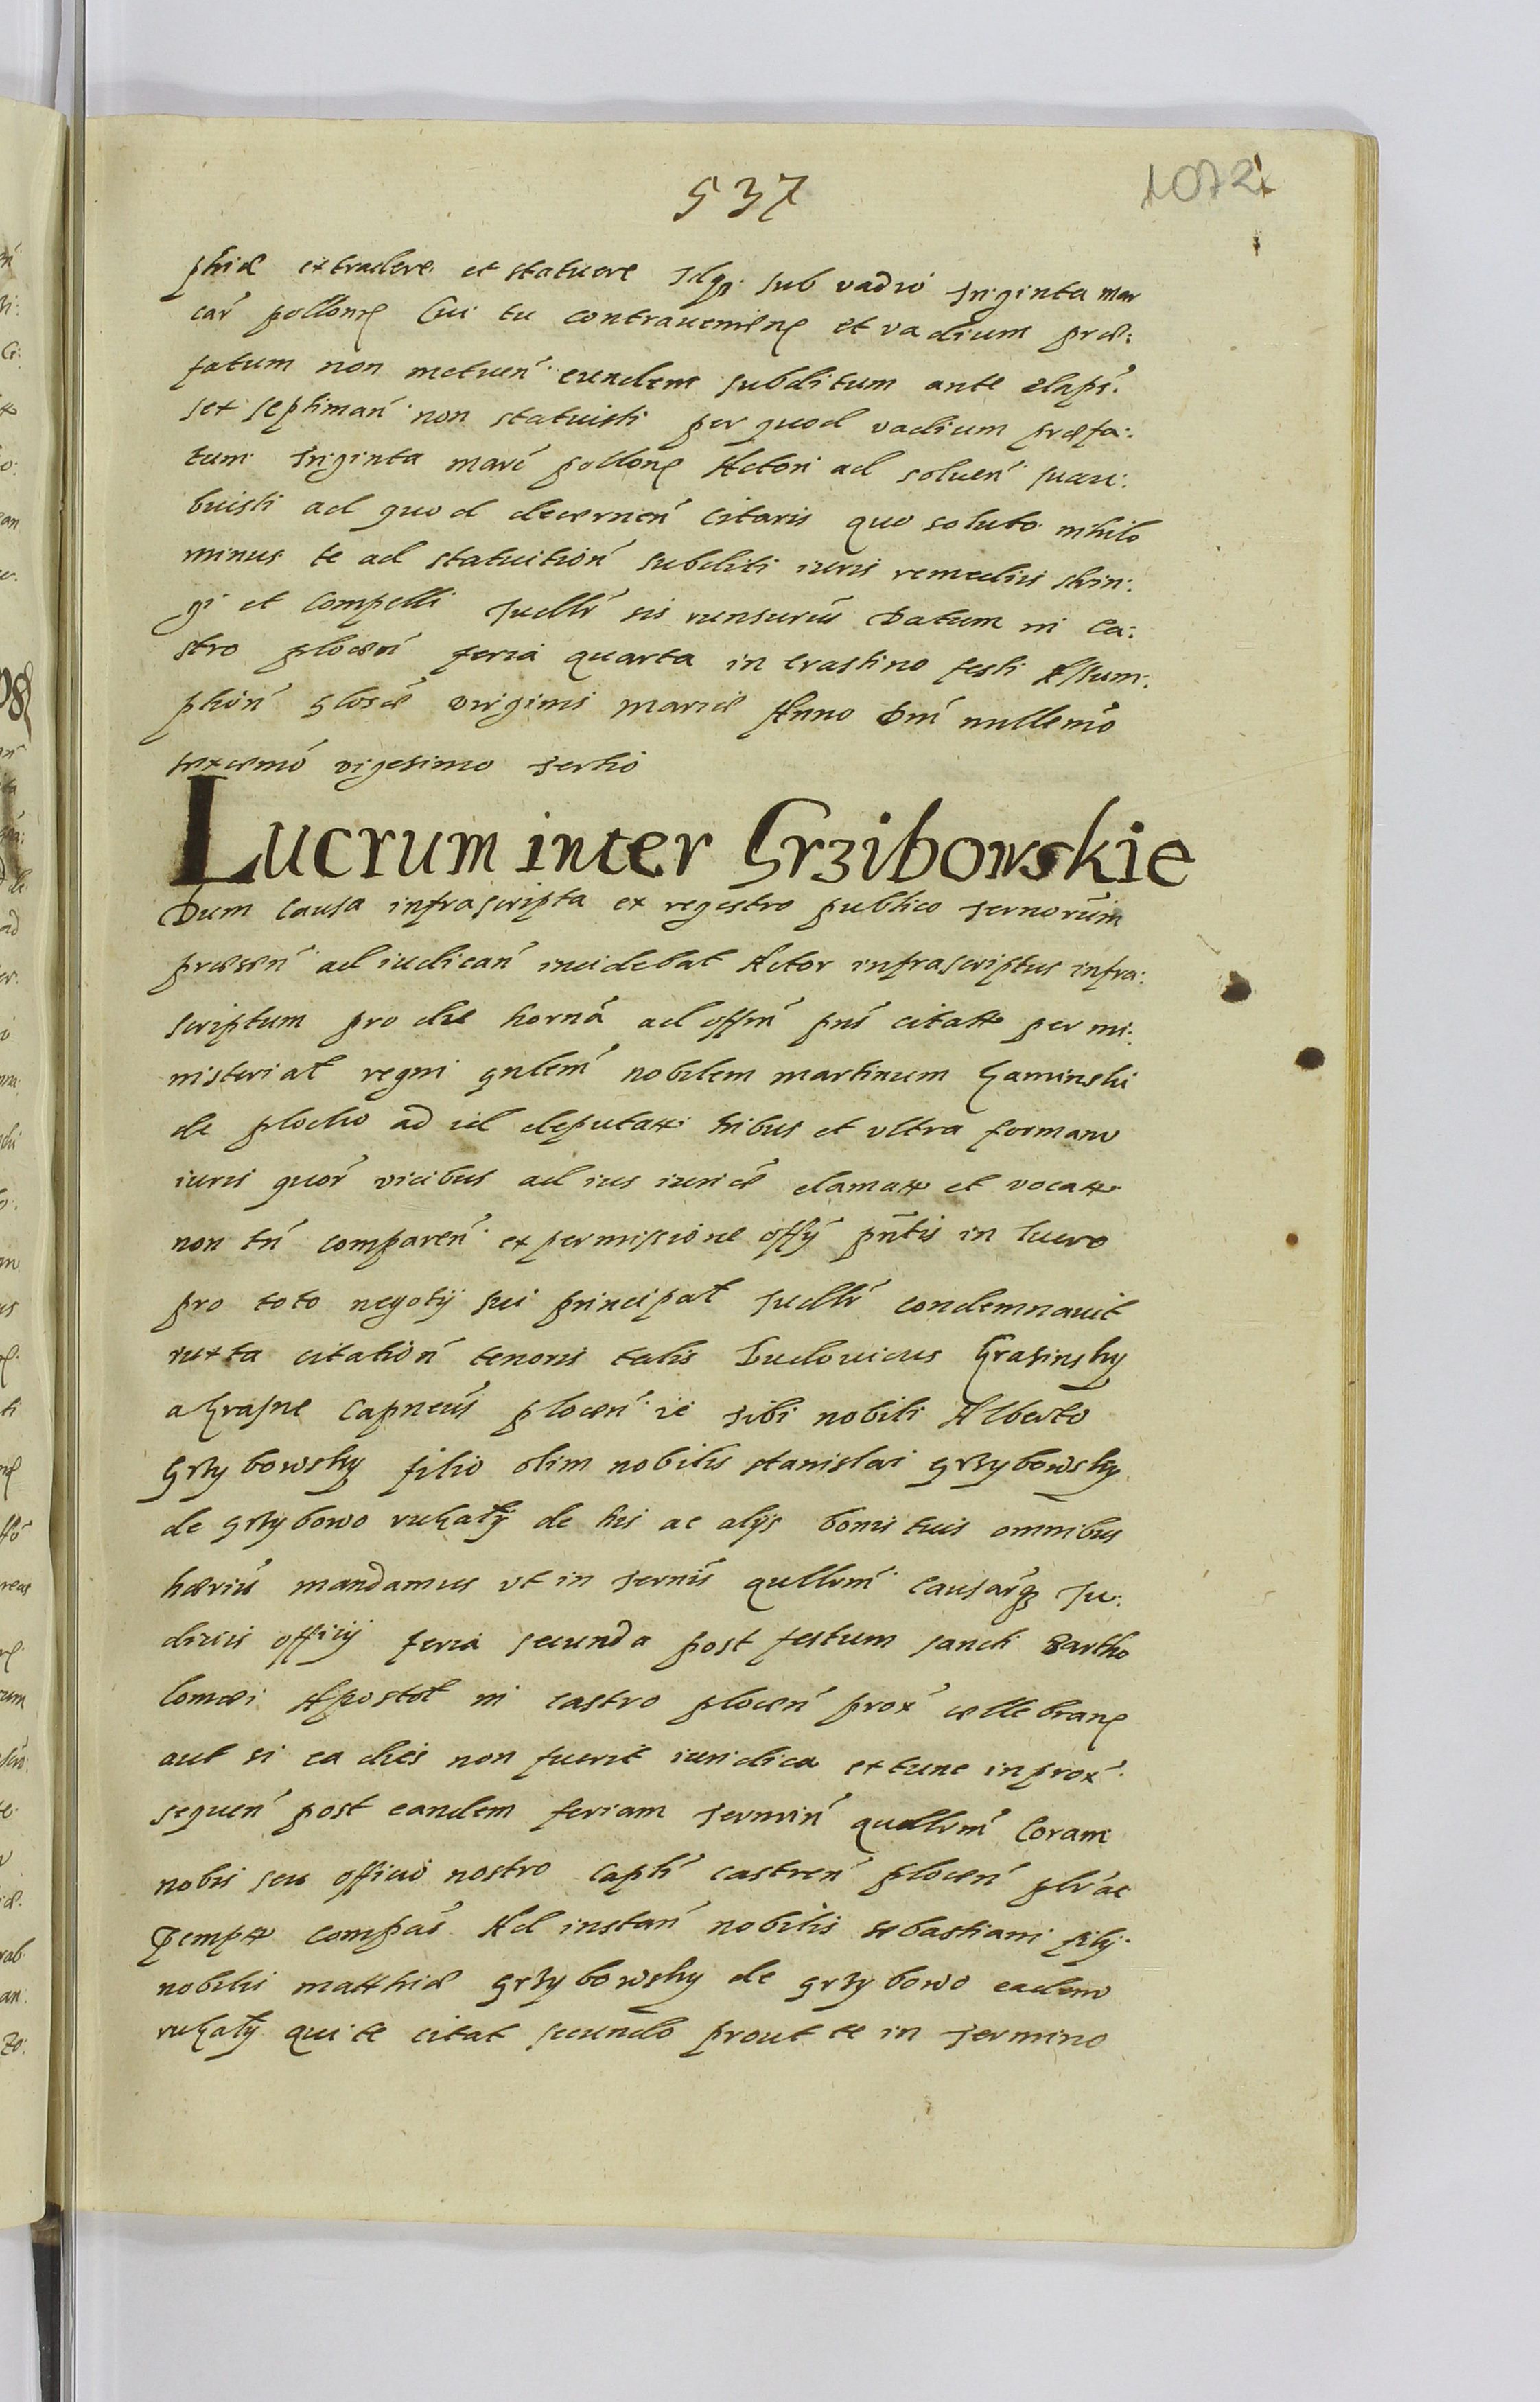 537
1072
phiæ extradere et statuere Idq₃ sub vadio Triginta mar
car̃ pollonꝭ Cui tu contraveniens et vadium præ:
fatum non metuen̄ eundem subditum ante elaps̃
sex septiman̄ non statuisti per quod vadium præfa:
tum Triginta marc̃ pollonꝭ Actori ad soluen̄ succu:
buisti ad quod decernen̄ citaris quo soluto nihilo
minus te ad statuition̄ subditi iuris remedijs strin:
gi et compelli Iudlr̃ sis visurus Datum in Ca:
stro plocen̄ feria quarta in crastino festi Assum:
ption̄ glosæ virginis mariæ Anno Dni millemo
sexcemo vigesimo tertio
Lucrum inter Grzibowskie
Dum causa infrascripta ex regestro publico Terminorum
præsen̄ ad iudican̄ incidebat Actor infrascriptus infra:
scriptum pro die horna ad offm̄ pns̃ citatt per mi:
nisterial regni gnlem̄ nobilem martinum Kaminski
de plocko ad id deputatt tribus et vltra formam
iuris quor̃ vicibus ad ius iuriæ clamatt et vocatt
non tn̄ comparen̄ ex permissione offy pn̄tis in lucro
pro toto negotij sui principal Iudlr̃ condemnauit
iuxta citation̄ tenoris talis Ludouicus Krasinsky
a Krasne Capneus plocen̄ tibi nobili Alberto
Grzybowsky filio olim nobilis stanislai grzybowsky
de grzybowo de his ac alijs bonis tuis omnibus
hærius mandamus vt in Termis̃ qullrm̄ causarq₃ Iu:
dicij officij feria secunda post festum sancti Bartho
lomæi Apostol in castro plocen̄ prox̃ cellebranꝭ
aut si ea dies non fuerit iuridica extunc in prox̃
sequen̄ post eandem feriam Termin̄ qullrm̄ Coram
nobis seu officio nostro Capli castren̄ plocen̄ plr̃ ac
pempt compas̃ Ad instan̄ nobilis sebastiani filij
nobilis matthiæ grzybowsky de grzybowo eadem
qui te citat secundo prout te in Termino